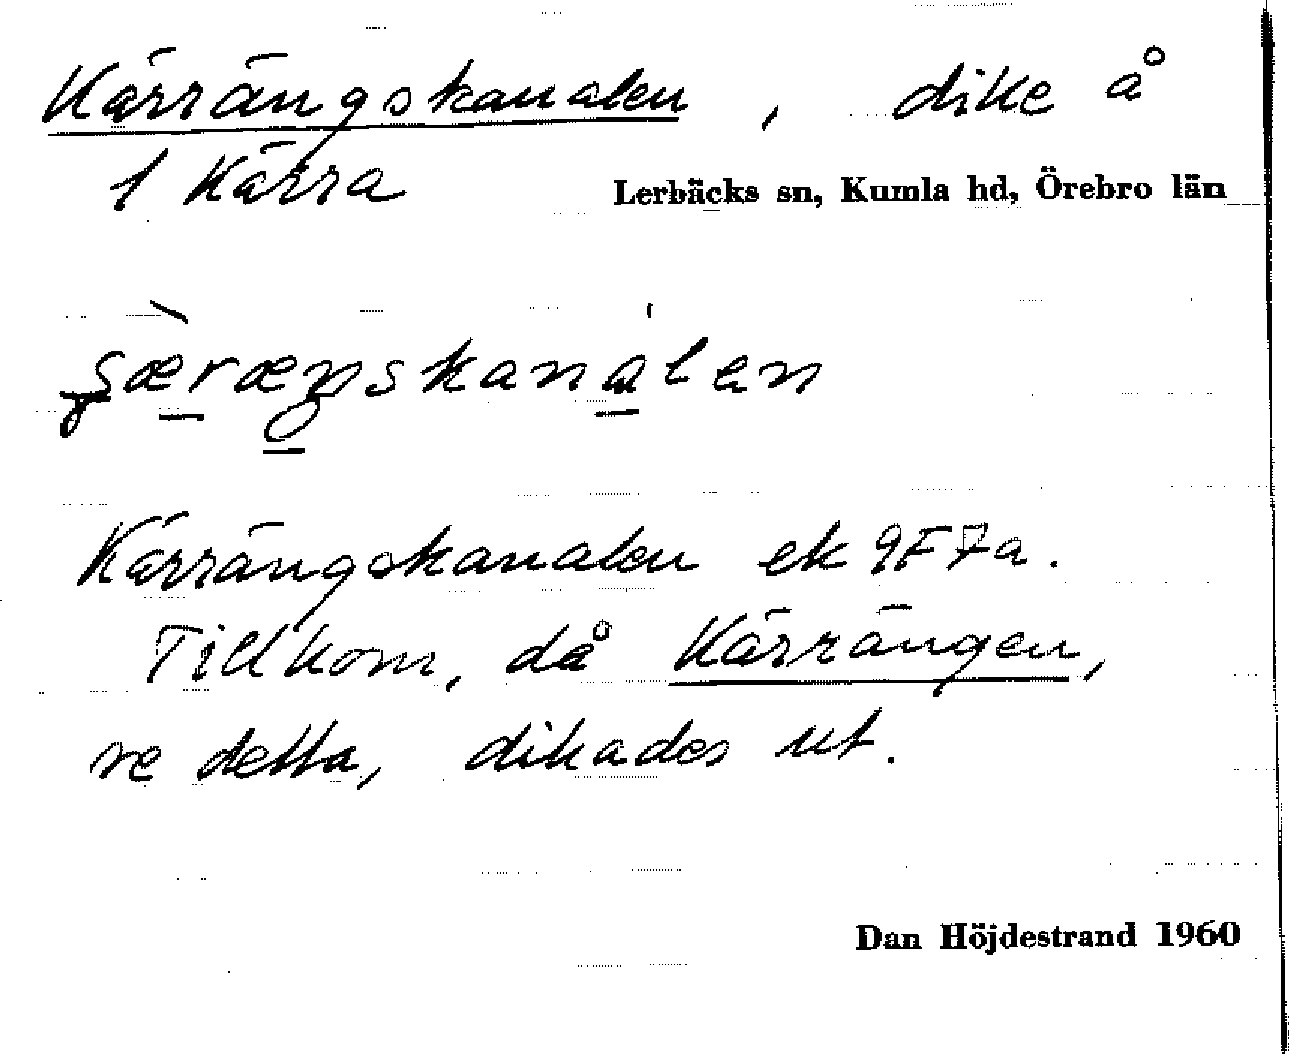 Kärrängskanalen, dike å
1 Kärra
Lerbäcks sn, Kumla hd, Örebro län
şæ̀ræŋskanálen
Kärrängskanalen ek 9F7a.
Tillkom, då Kärrängen,
se detta, dikades ut.
Dan Höjdestrand 1960